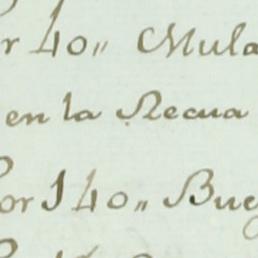 r 40,, Mula
en la Recua
or 140,, Buey